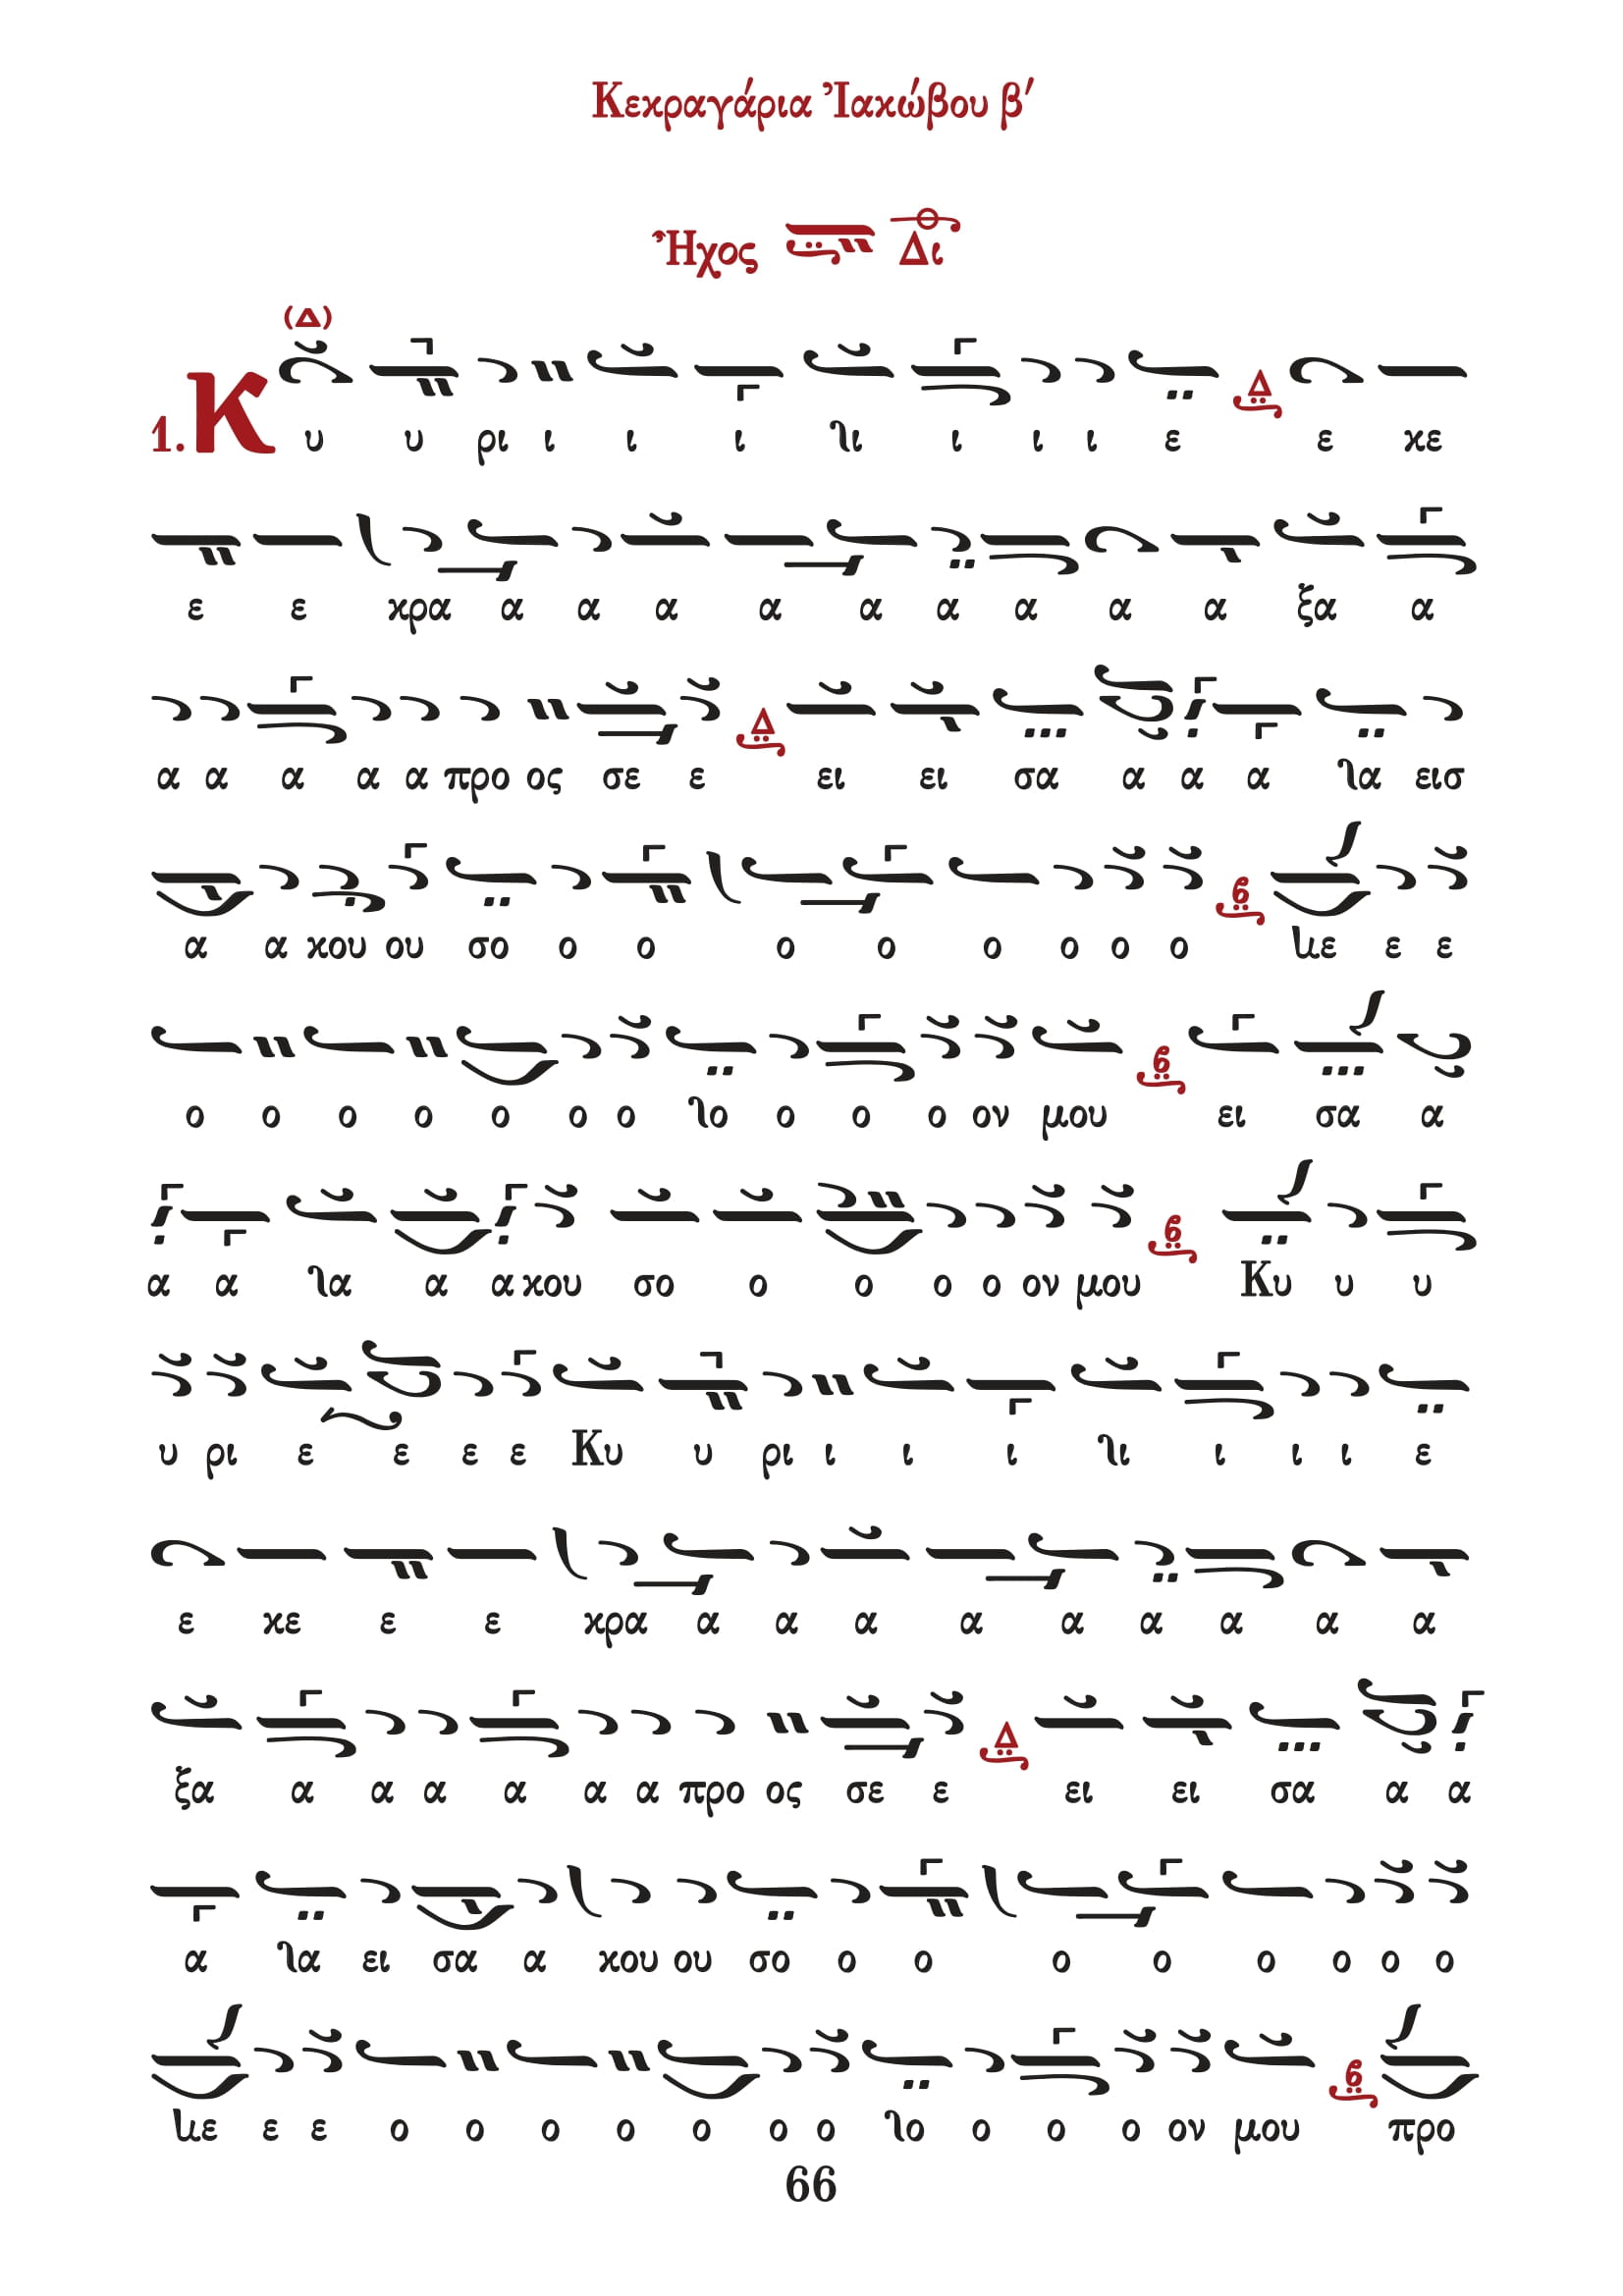 Κεκραγάρια Ἰακώβου β′
Ἦχος Δι
(Δ)
1. Κ υ υ ρι ι ι ι ι ι ι ι ε Δ ε κε
ε ε κρα α α α α α α α α α ξα α
α α α α α προ ος σε ε Δ ει ει σα α α α α εισ
α α κου ου σο ο ο ο ο ο ο ο ο β ε ε ε
ο ο ο ο ο ο ο ο ο ο ο ον μου β ει σα α
α α α α α κου σο ο ο ο ο ον μου β Κυ υ υ
υ ρι ε ε ε ε Κυ υ ρι ι ι ι ι ι ι ι ε
ε κε ε ε κρα α α α α α α α α α
ξα α α α α α α προ ος σε ε Δ ει ει σα α α
α α ει σα α κου ου σο ο ο ο ο ο ο ο ο
ε ε ε ο ο ο ο ο ο ο ο ο ο ο ον μου β προ
66